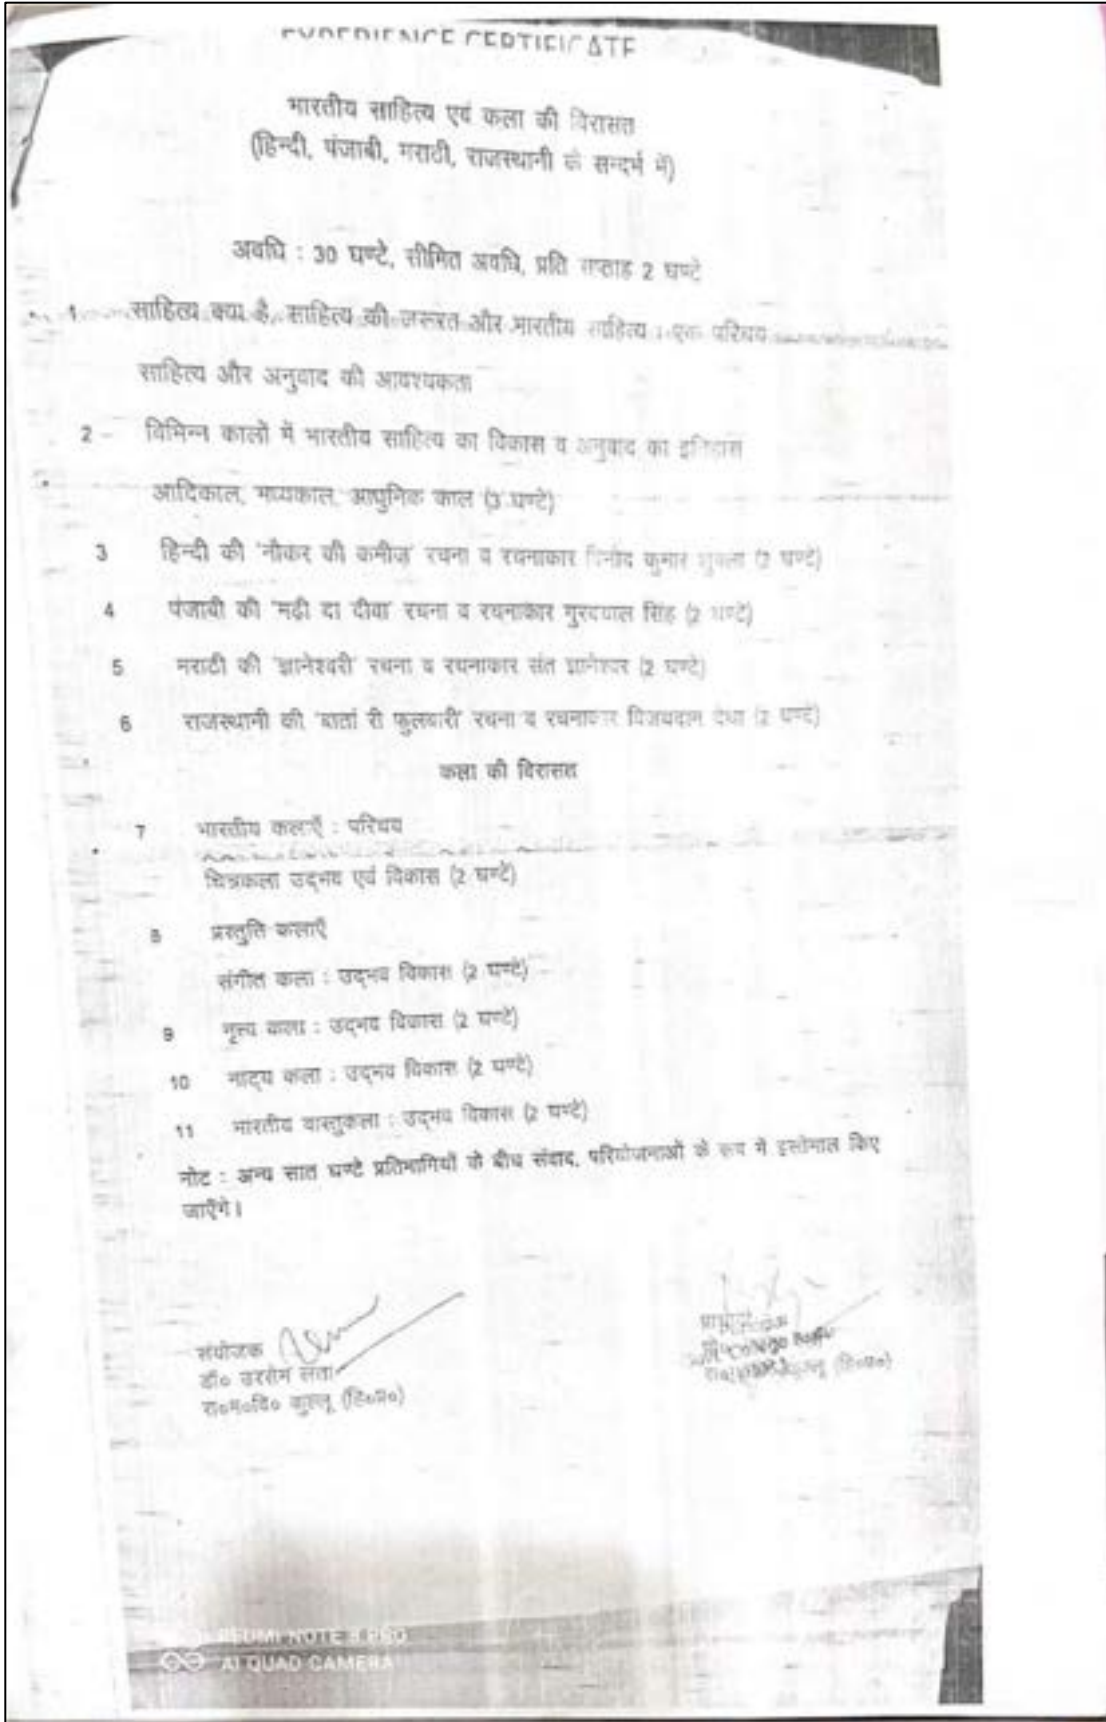 EXPERIENCE CERTIFICATE
भारतीय साहित्य एवं कला की विरासत
(हिन्दी, पंजाबी, मराठी, राजस्थानी के सन्दर्भ में)
अवधि : 30 घण्टे, सीमित अवधि, प्रति सप्ताह 2 घण्टे
1. साहित्य क्या है, साहित्य की जरूरत और भारतीय साहित्य : एक परिचय
साहित्य और अनुवाद की आवश्यकता
2 - विभिन्न कालों में भारतीय साहित्य का विकास व अनुवाद का इतिहास
आदिकाल, मध्यकाल, आधुनिक काल (3 घण्टे)
3 हिन्दी की 'नौकर की कमीज' रचना व रचनाकार विनोद कुमार शुक्ला (2 घण्टे)
4 पंजाबी की 'मढ़ी दा दीवा' रचना व रचनाकार गुरदयाल सिंह (2 घण्टे)
5 मराठी की 'ज्ञानेश्वरी' रचना व रचनाकार संत ज्ञानेश्वर (2 घण्टे)
6 राजस्थानी की 'बातां री फुलवारी' रचना व रचनाकार विजयदान देथा (2 घण्टे)
कला की विरासत
7 भारतीय कलाएँ : परिचय
चित्रकला उद्भव एवं विकास (2 घण्टे)
8 प्रस्तुति कलाएँ
संगीत कला : उद्भव विकास (2 घण्टे)
9 नृत्य कला : उद्भव विकास (2 घण्टे)
10 नाट्य कला : उद्भव विकास (2 घण्टे)
11 भारतीय वास्तुकला : उद्भव विकास (2 घण्टे)
नोट : अन्य सात घण्टे प्रतिभागियों के बीच संवाद, परियोजनाओं के रूप में इस्तेमाल किए
जाएँगे।
संयोजक
डॉ० उरसेम लता
रा०म०वि० कुल्लू (हि०प्र०)
कुल्लू (हि०प्र०)
REDMI NOTE 8 PRO
AI QUAD CAMERA